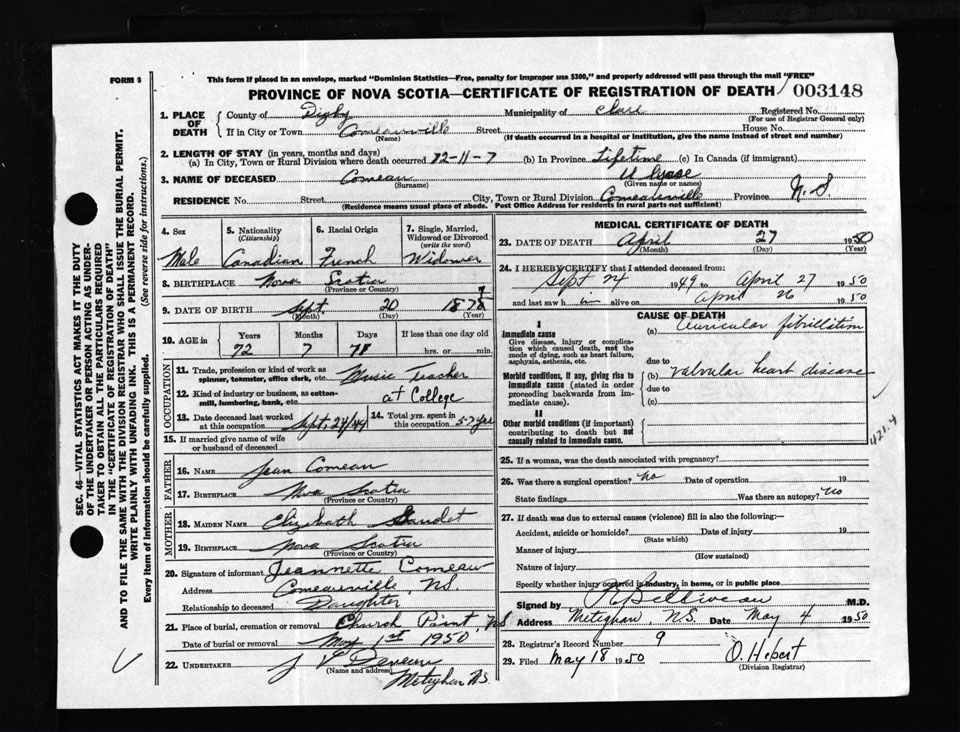 FORM 9
This form if placed in an envelope, marked "Dominion Statistics—Free, penalty for improper use $300," and properly addressed will pass through the mail "FREE"
PROVINCE OF NOVA SCOTIA—CERTIFICATE OF REGISTRATION OF DEATH 003148
SEC. 46—VITAL STATISTICS ACT MAKES IT THE DUTY
OF THE UNDERTAKER OR PERSON ACTING AS UNDER-
TAKER TO OBTAIN ALL THE PARTICULARS REQUIRED
IN THE "CERTIFICATE OF REGISTRATION OF DEATH"
AND TO FILE THE SAME WITH THE DIVISION REGISTRAR WHO SHALL ISSUE THE BURIAL PERMIT.
WRITE PLAINLY WITH UNFADING INK. THIS IS A PERMANENT RECORD.
Every item of Information should be carefully supplied. (See reverse side for instructions.)
1. PLACE OF DEATH
County of Digby Municipality of Clare Registered No.
(For use of Registrar General only)
If in City or Town Comeauville Street House No.
(Name) (If death occurred in a hospital or institution, give the name instead of street and number)
2. LENGTH OF STAY (in years, months and days)
(a) In City, Town or Rural Division where death occurred 72-11-7 (b) In Province Lifetime (c) In Canada (if immigrant)
3. NAME OF DECEASED Comeau Ulysse
(Surname) (Given name or names)
RESIDENCE No. Street City, Town or Rural Division Comeauville Province N.S.
(Residence means usual place of abode. Post Office Address for residents in rural parts not sufficient)
4. Sex 5. Nationality (Citizenship) 6. Racial Origin 7. Single, Married, Widowed or Divorced (write the word)
Male Canadian French Widower
8. BIRTHPLACE Nova Scotia
(Province or Country)
9. DATE OF BIRTH Sept. 20 187
(Month) (Day) (Year)
10. AGE in Years Months Days If less than one day old
72 7 hrs. or min.
OCCUPATION
11. Trade, profession or kind of work as
spinner, teamster, office clerk, etc. Music Teacher
12. Kind of industry or business, as cotton-
mill, lumbering, bank, etc. at College
13. Date deceased last worked
at this occupation Sept. 24/49
14. Total yrs. spent
in this occupation 57 yrs
15. If married give name of wife
or husband of deceased
FATHER
16. NAME Jean Comeau
17. BIRTHPLACE Nova Scotia
(Province or Country)
MOTHER
18. MAIDEN NAME Elizabeth Gaudet
19. BIRTHPLACE Nova Scotia
(Province or Country)
20. Signature of informant Jeannette Comeau
Address Comeauville, N.S.
Relationship to deceased Daughter
21. Place of burial, cremation or removal Church Point, N.S.
Date of burial or removal May 1st 1950
22. UNDERTAKER J V Deveau
(Name and address) Meteghan N.S.
MEDICAL CERTIFICATE OF DEATH
23. DATE OF DEATH April 27 1950
(Month) (Day) (Year)
24. I HEREBY CERTIFY that I attended deceased from:
Sept 24 1949 to April 27 1950
and last saw him alive on April 26 1950
CAUSE OF DEATH
I
Immediate cause
Give disease, injury or complica-
tion which caused death, not the
mode of dying, such as heart failure,
asphyxia, asthenia, etc.
(a) auricular fibrillation
due to
Morbid conditions, if any, giving rise to
immediate cause (stated in order
proceeding backwards from im-
mediate cause).
(b) valvular heart disease
due to
(c)
II
Other morbid conditions (if important)
contributing to death but not
causally related to immediate cause.
421.4
25. If a woman, was the death associated with pregnancy?
26. Was there a surgical operation? No Date of operation 19
State findings Was there an autopsy? No
27. If death was due to external causes (violence) fill in also the following:—
Accident, suicide or homicide? Date of injury 19
(State which)
Manner of injury
(How sustained)
Nature of injury
Specify whether injury occurred in industry, in home, or in public place
Signed by Belliveau M.D.
Address Meteghan, N.S. Date May 4 1950
28. Registrar's Record Number 9
29. Filed May 18 1950 O. Hebert
(Division Registrar)